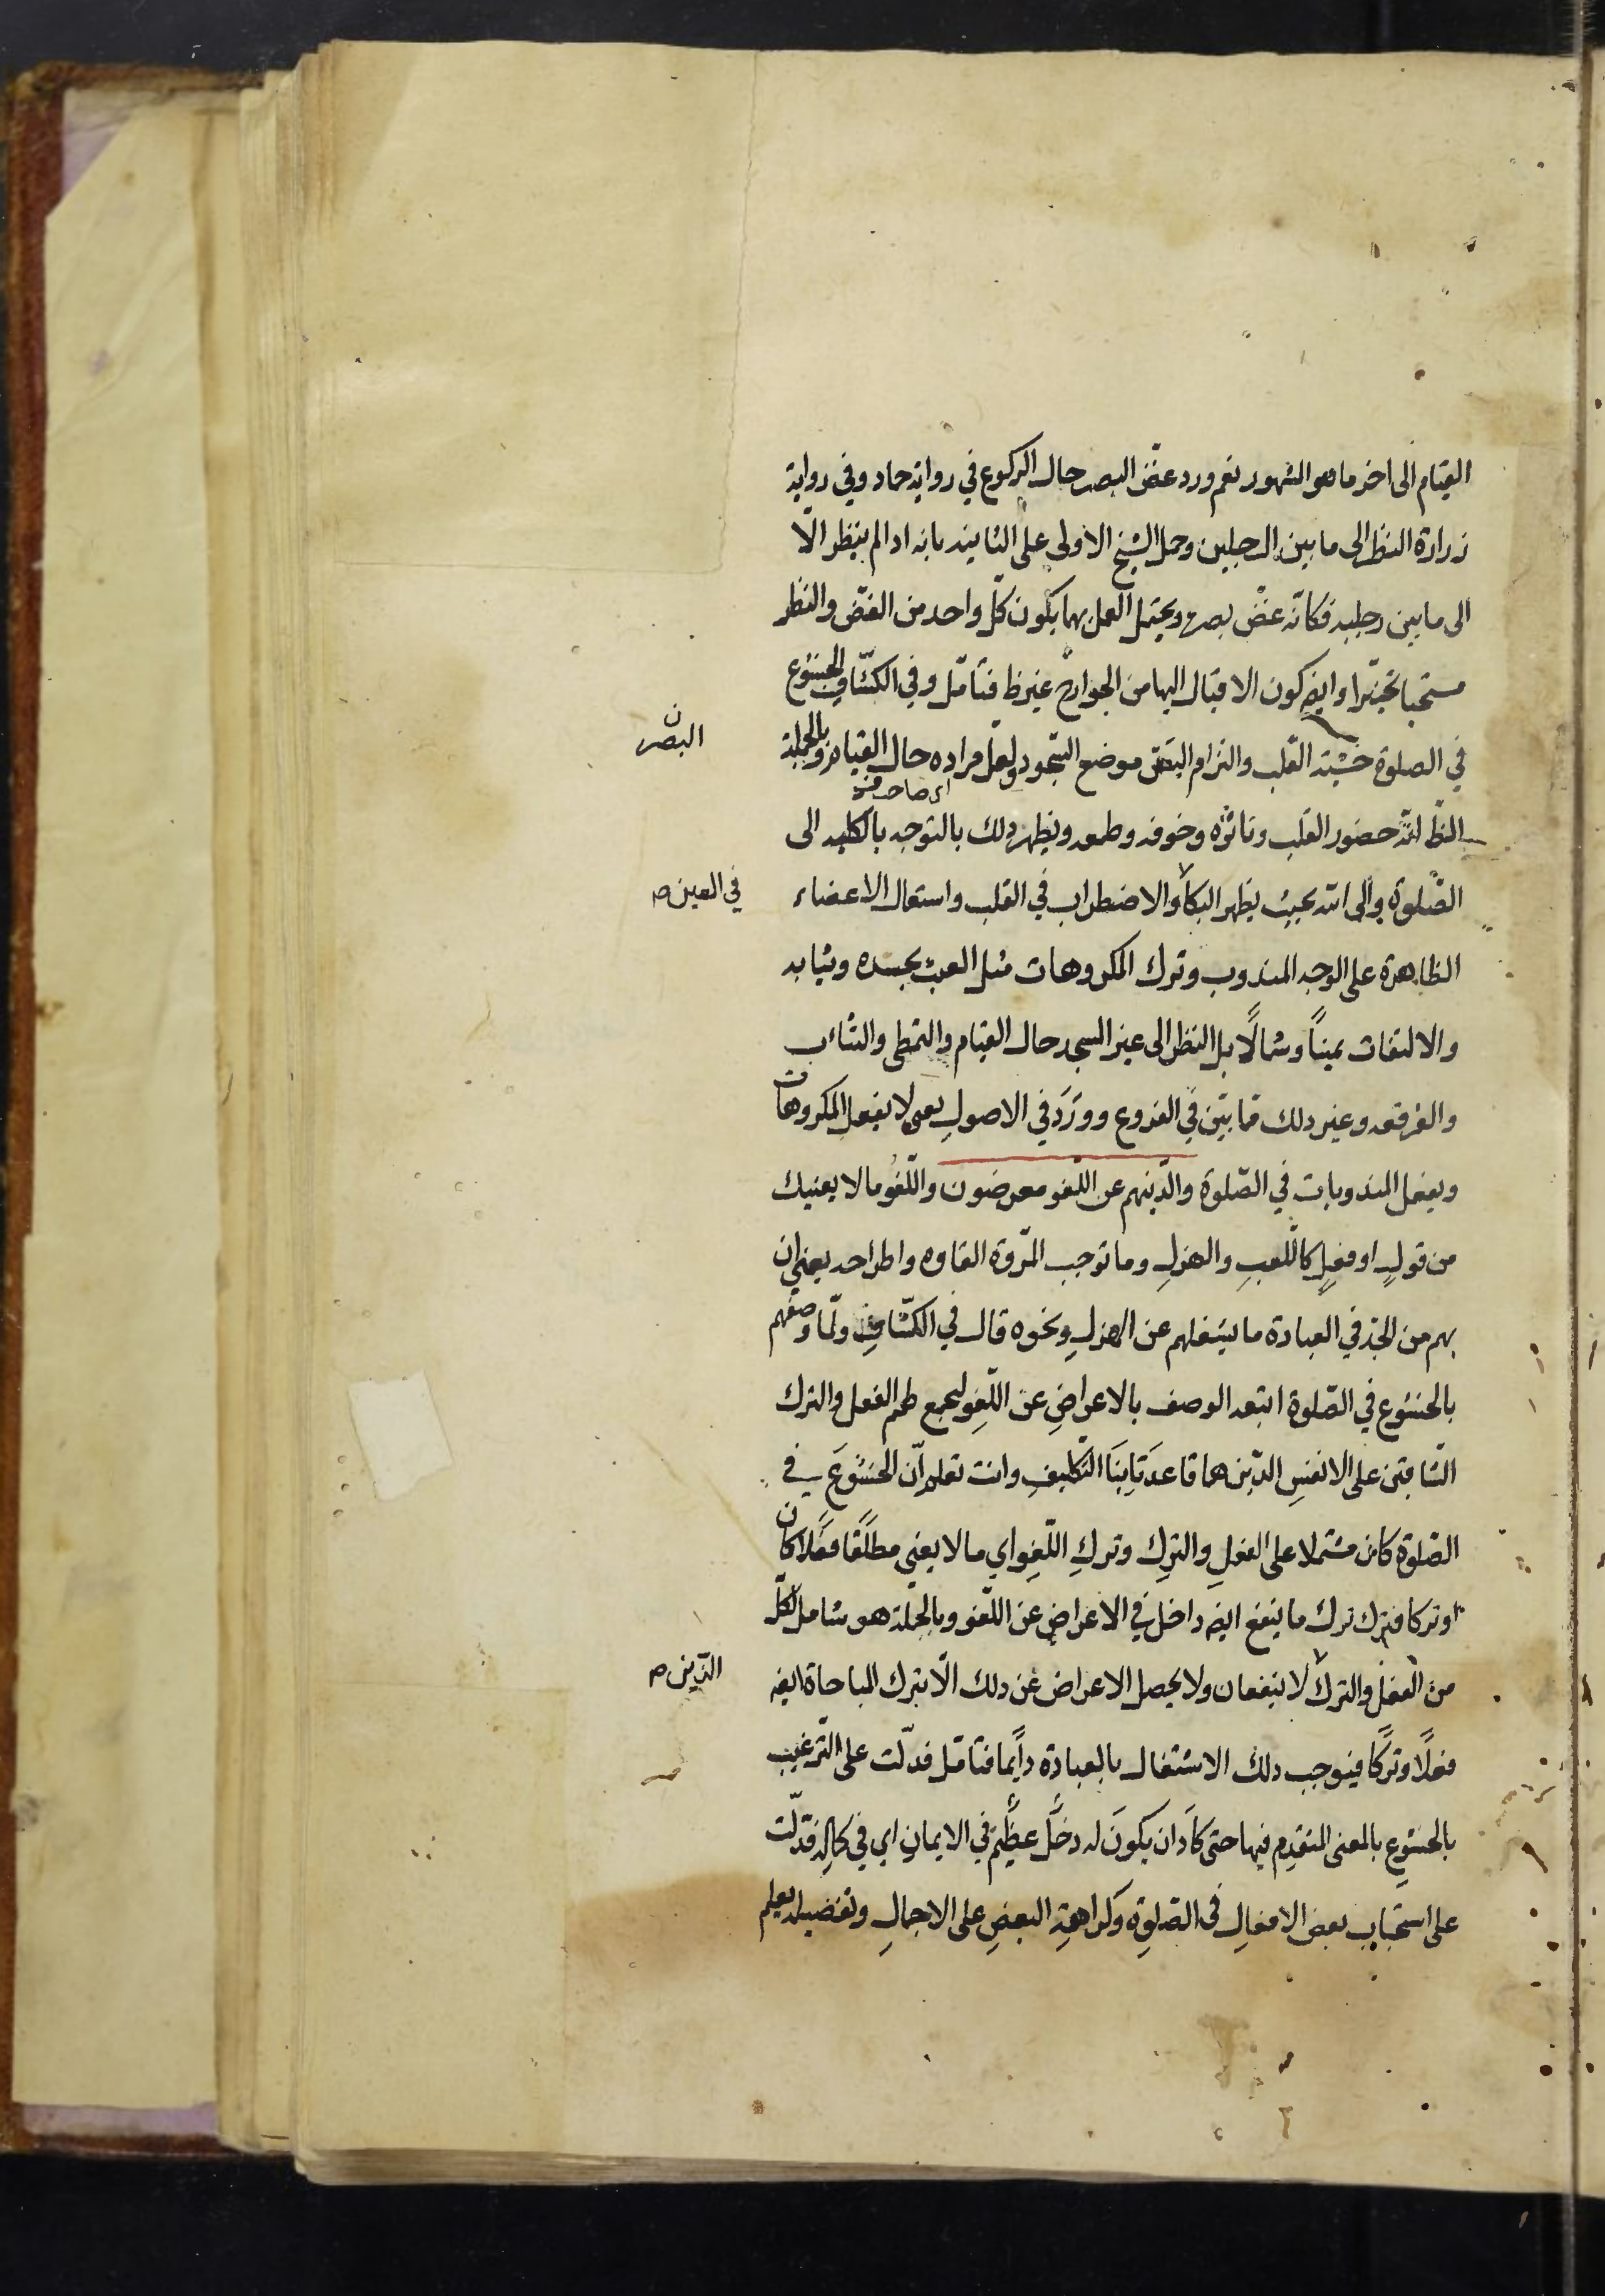 القيام الى اخر ما هو المشهور نعم ورد غض البصر حال الركوع في رواية حماد وفي رواية
زرارة النظر الى ما بين الرجلين وحمل الشيخ الاولى على الثانية بانه اذا لم ينظر الّا
الى ما بين رجليه فكانّه غضّ بصره ويحتمل العمل بهما بكون كلّ واحد من الغضّ والنظر
مستحبا تخييرا وايضا كون الاقبال اليها من الجوارح غير ظ فتامّل وفي الكشّاف الخشوع
في الصلوة خشية القلب والتزام البصر موضع السّجود ولعلّ مراده حال القيام وبالجملة
البصر ن
اى صاحب
الظّ انّه حضور القلب وتاثّره وخوفه وطمعه ويظهر ذلك بالتوجه بالكليه الى
الصّلوة والى الله بحيث يظهر البكاء والاضطراب في القلب واستعمال الاعضاء
في العين ص
الظاهرة على الوجه المندوب وترك المكروهات مثل العبث بجسده وثيابه
والالتفات يميناً وشمالًا بل النظر الى غير المسجد حال القيام والتمطى والتثاءب
والفرقعه وغير ذلك ممّا بيّن في الفروع وورَدَ في الاصولِ يعنى لا يفعل المكروهات
ويفعل المندوبات في الصّلوة والّذينهم عن اللّغو معرضون واللّغو ما لا يعنيك
من قولٍ او فعلٍ كاللّعبِ والهزلِ وما توجب المرّوة الغاءه واطراحه يعني ان
بهم من الجدّ في العبادة ما يشغلهم عن الهزلِ ونحوه قال في الكشّافِ ولمّا وصفهم
بالخشوع في الصّلوة اتبعه الوصف بالاعراضِ عن اللّغوِ ليجمع لهم الفعل والترك
الشّاقّين على الانفسِ الذين هما قاعدَتا بنَا التكليفِ وانت تعلم انّ الخشوعَ في
الصّلوة كان مشتملا على الفعلِ والتركِ وتركِ اللّغوِ اي ما لا يعنى مطلَقًا فعلًا كان
او تركا فترك ترك ما ينفع ايضا داخل في الاعراضِ عن اللّغو وبالجملة هو شامل لكلّ
من الفعل والترك لا ينفعان ولا يحصل الاعراض عن ذلك الّا بترك المباحاة ايضا
الّذين ص
فعلًا وتركًا فيوجب ذلك الاشتغال بالعبادة دايمًا فتامّل فدلّت على الترغيب
بالخشوعِ بالمعنى المتقدِم فيها حتى كادَ ان يكونَ له دخلٌ عظيمٌ في الايمانِ اي في كماله فدلّت
على استحبابِ بعض الافعالِ في الصّلوةِ وكراهةِ البعضِ على الاجمالِ وتفصيله يعلم